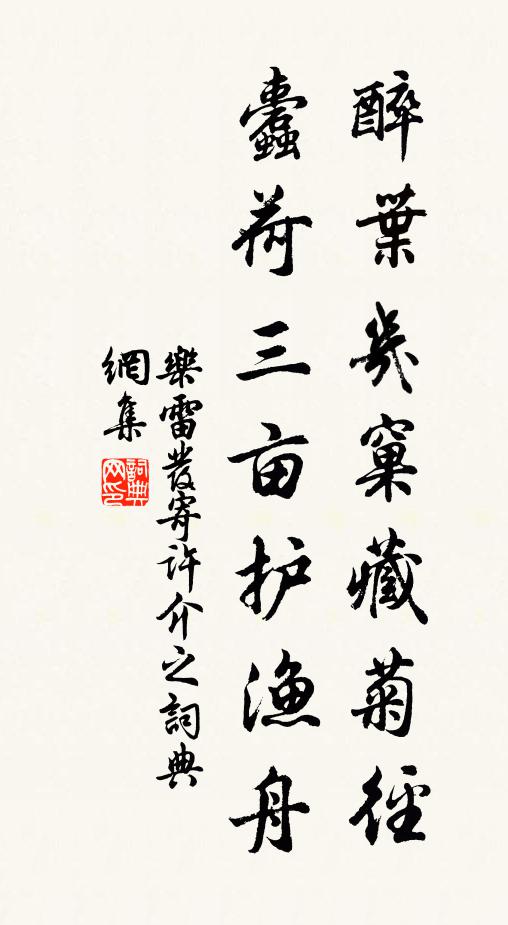 醉葉幾窠藏菊徑
蠹荷三亩护漁舟
樂雷發寄許介之詞典
網集
詞典
网印